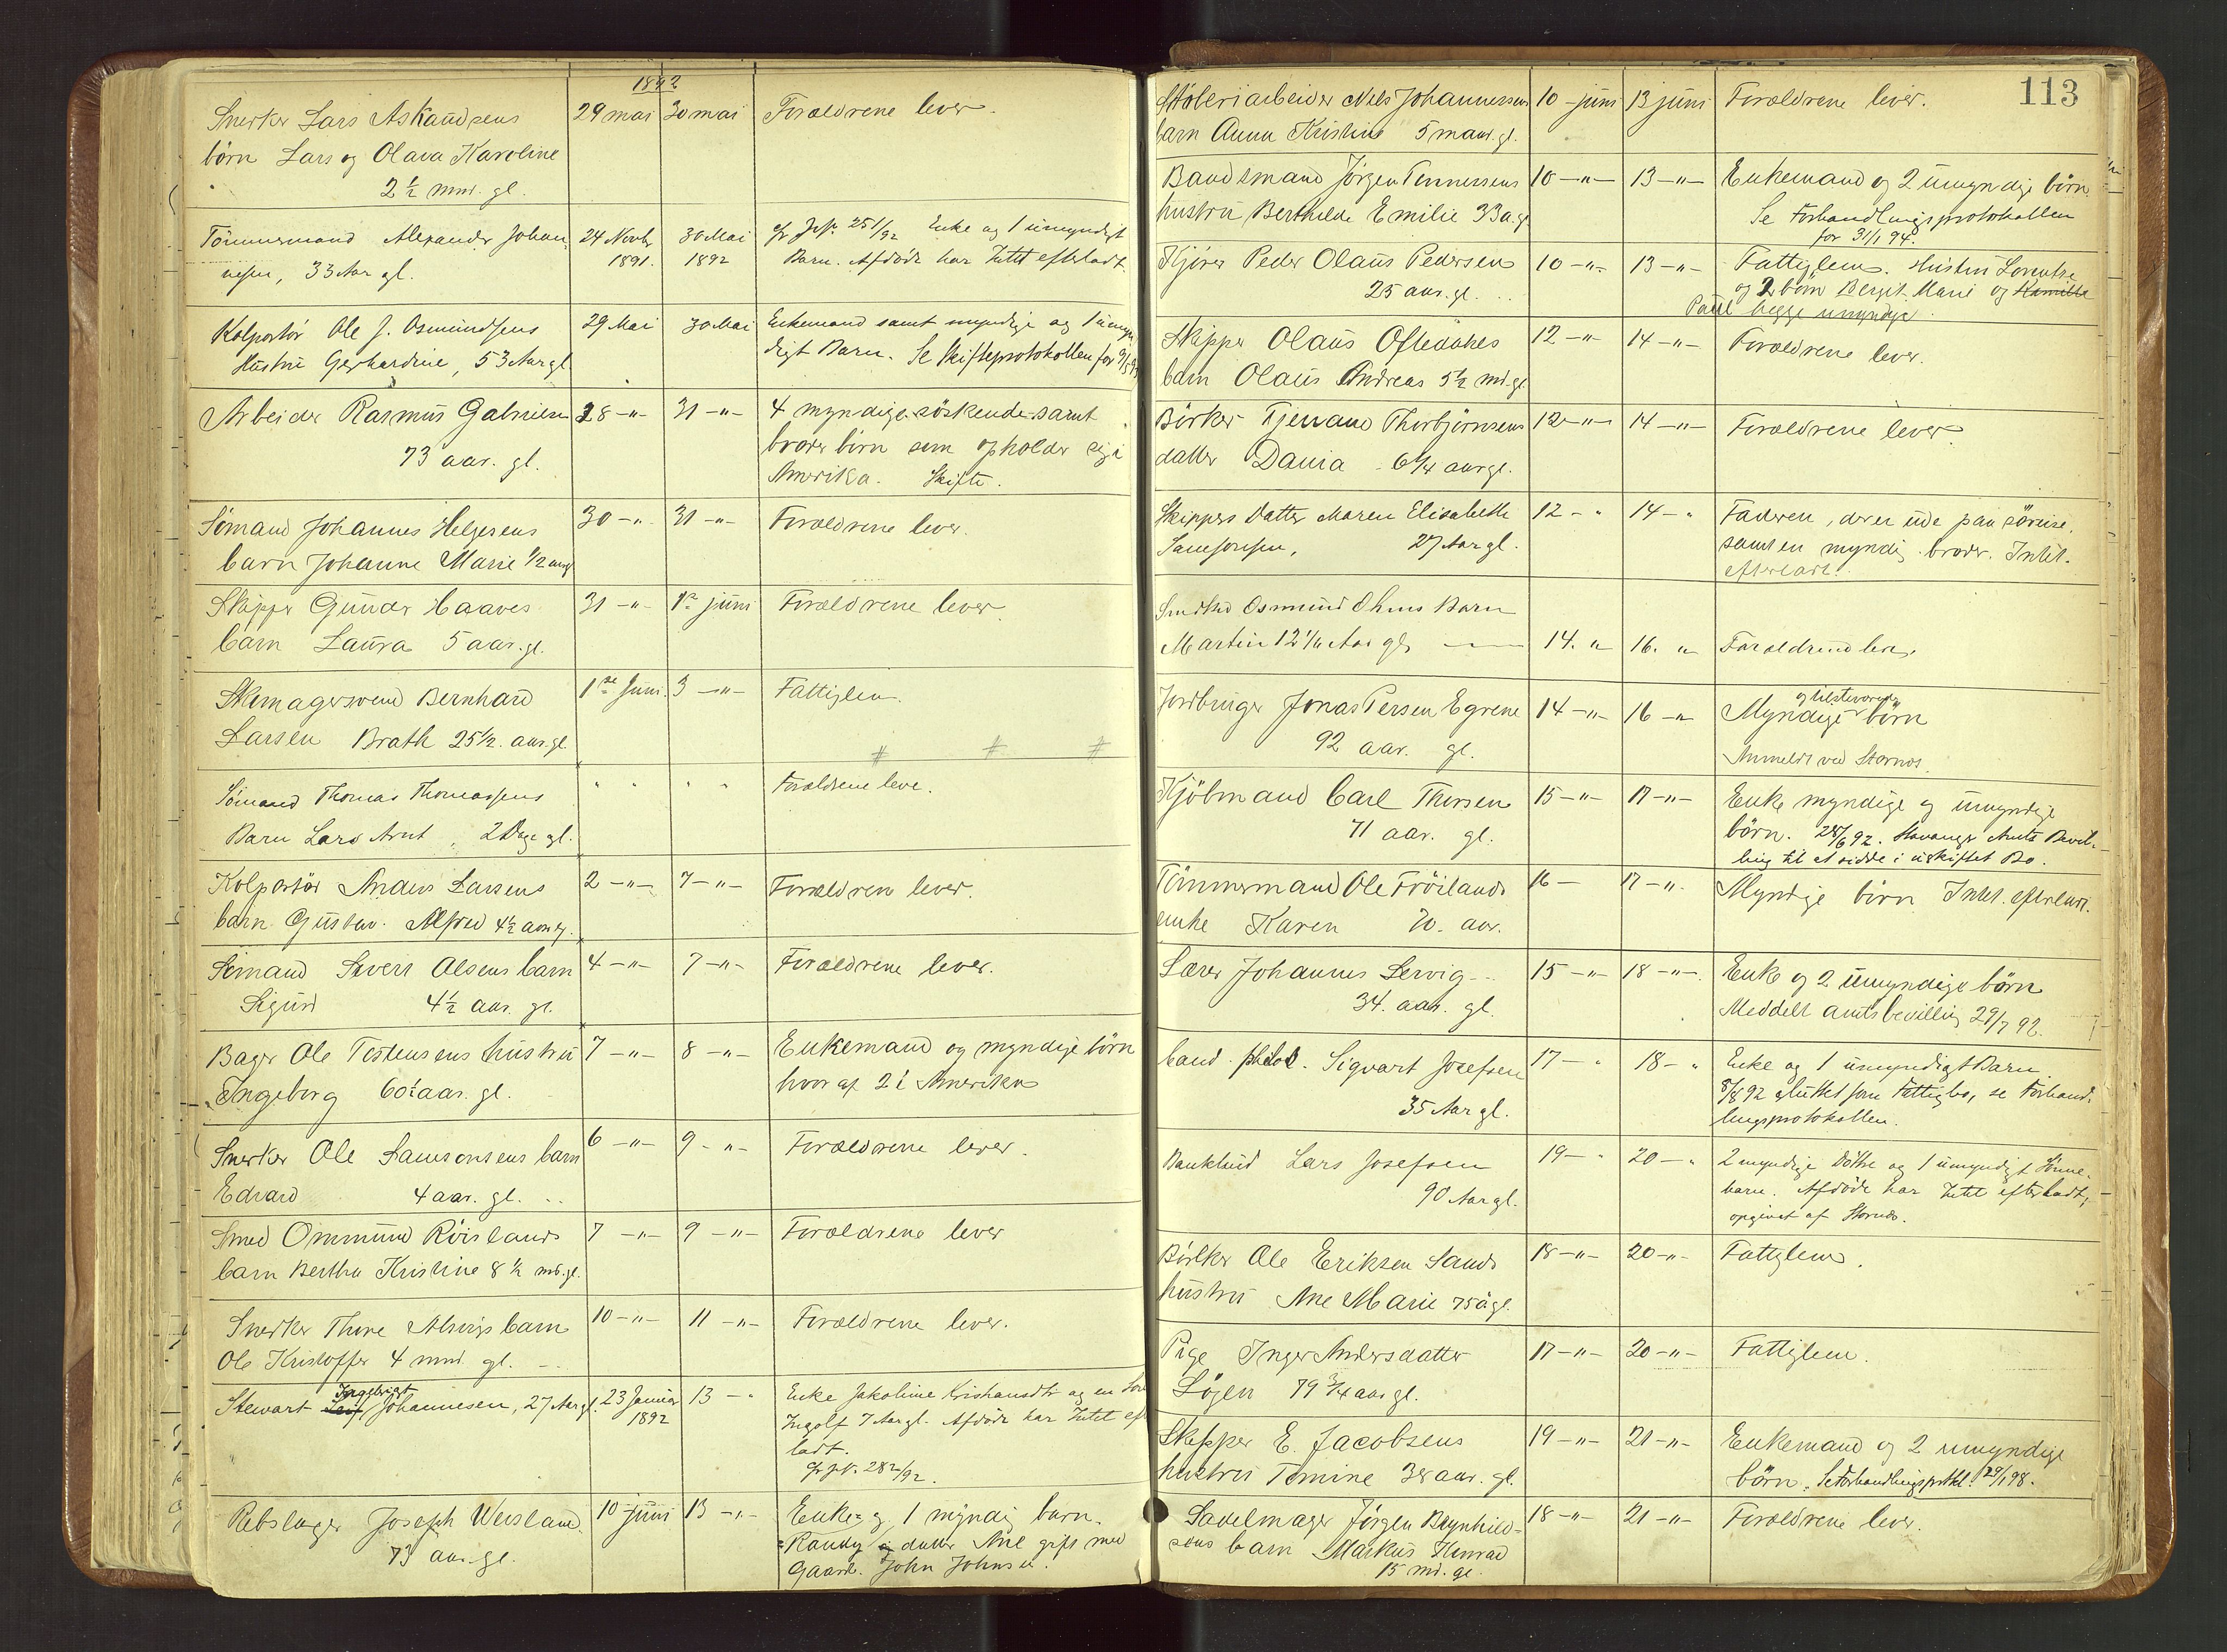 1892
Snerker Lars Askaudsens 29 mai 30 mai Forældrene lever.
børn Lars og Olava Karoline
2½ mnd. gl.
Tömmermand Alexander Johan 24 Novbr 30 Mai Enke og 1 umyndigt
nesen, 33 Aar gl. 1891. 1892 Barn. Afdøde har Intet efterladt
Kolportör Ole J. Osmundsens 29 Mai 30 Mai Enkemand samt myndige og 1 umyn
Hustru Gerhardine, 53 Aar gl digt Barn. Se Skifteprotokollen for
Arbeider Rasmus Gabrielsen 28 -"- 31 -"- 4 myndige söskende samt
73 aar. gl. broder börn som opholder sig i
Amerika. Skifte.
Sömand Johannes Helgesens 30 -"- 31 -"- Forældrene lever.
barn Johanne Marie ½ aar gl
Skipper Gunder Haaves 31 -"- 1ste juni Forældrene lever.
barn Laura 5 aar. gl.
Skomagersvend Bernhard 1ste Juni 3 -"- Fattiglem.
Larsen Brath 25½ aar. gl.
# # #
Sömand Thomas Thomassens " " " " Forældrene leve.
Barn Lars Arnt, 2 Dage gl.
Kolportör Anders Larsens 2 -"- 7 -"- Forældrene lever.
barn Gustav Alfred 4½ aar g.
Sömand Sivert Olsens barn 4 -"- 7 -"- Forældrene lever.
Sigurd 4½ aar. gl.
Bager Ole Tostensens hustru 7 -"- 8 -"- Enkemand og myndige börn
Ingeborg 60½ aar. gl. hvor af 2 i Amerika
Snerker Ole Samsonsens barn 6 -"- 9 -"- Forældrene lever.
Edvard 4 aar. gl.
Smed Ommund Röislands 7 -"- 9 -"- Forældrene lever
barn Bertha Kristine 8½ md. gl.
Snerker Thore Alvigs barn 10 -"- 11 -"- Forældrene lever.
Ole Kristoffer 4 mnd. gl.
Ingebrigt
Stewart Johannesen, 27 Aar gl. 23 Januar 13 - " Enke Jakobine Kristiansdtr og en Sön
1892 Ingolf 7 Aar gl. Afdöde har Intet ef
ladt.
Rebslager Joseph Weisland 10 juni 13 -"- Enke og 1 myndig barn.
73 aar. gl. Randy og datter Ane gift med
Gaardb. John Johnsen.
113
Stöberiarbeider Nils Johannessens 10 juni 13 juni Forældrene lever.
barn Anna Kristine 5 maan. gl.
Baadsmand Jörgen Tönnessens 10 -"- 13 -"- Enkemand og 2 umyndige börn
hustru Berthilde Emilie 33 a. gl Se Forhandlingsprotokollen
for 31/1 94.
Kjörer Peder Olaus Pedersen 10 -"- 13 -"- Fattiglem. Hustru Lorentze
25 aar. gl. og 2 börn Bergit Marie og Kamille
Paul begge umyndige.
Skipper Olaus Oftedahls 12 -"- 14 -"- Forældrene lever.
barn Olaus Andreas 5½ md. gl
Börker Tjerrand Thorbjörnsens 12 -"- 14 -"- Forældrene lever.
datter Dania 6¼ aar gl.
Skippers Datter Maren Elisabeth 12 - " 14 - " Faderen, der er ude paa söreise,
Samsonsen, 27 Aar gl. samt en myndig broder. Intet
efterladt.
Osmund Barn
Martin 12 1/12 Aar gl. 14. " 16. " Forældrene lever.
Jordbruger Jonas Persen Egrene 14 -"- 16 -"- Myndige og tilstedeværende börn
92 aar. gl. Anmeldt ved Stornos.
Kjöbmand Carl Thorsen 15 -"- 17 -"- Enke myndige og umyndige
71 aar. gl. börn. 28/6 92. Stavanger Amts Bevil-
ling til at sidde i uskiftet Bo.
Tömmermand Ole Fröilands 16 - 17 -"- Myndige börn Intet efterladt.
enke Karen 70 aar.
Lærer Johannes Servig 15 -"- 18 -"- Enke og 2 umyndige börn
34. aar. gl. Meddelt amtsbevilling 29/7 92.
Cand. philos. Sigvart Josefsen 17 - " 18 - " Enke og 1 umyndigt Barn.
35 Aar gl. 8/8 92 sluttet som Fattigbo, se Forhand-
lingsprotokollen.
Bankbud Lars Josefsen 19 - " 20 - " 2 myndige Döttre og 1 umyndigt Sönne-
90 Aar gl. barn. Afdöde har Intet efterladt,
opgivet af Stornos.
Börker Ole Eriksen Sands 18 -"- 20 -"- Fattiglem.
hustru Ane Marie 75 a gl.
Pige Inger Andersdatter 17 -"- 20 -"- Fattiglem.
Lögen 79¾ aar gl.
Skipper E. Jacobsens 19 -"- 21 -"- Enkemand og 2 umyndige
hustru Tomine 38 aar. gl. börn. Se Forhandlingsprotkl. 29/1 98.
Sadelmager Jörgen Brynhild- 18 -"- 21 -"- Forældrene lever.
sens barn Markus Konrad
15 md. gl